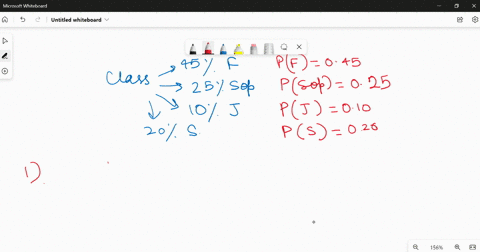 Microsoft Whiteboard
Untitled whiteboard
45% F P(F) = 0.45
Class 25% Sop P(Sop) = 0.25
10% J P(J) = 0.10
20% S P(S) = 0.20
1)
156%